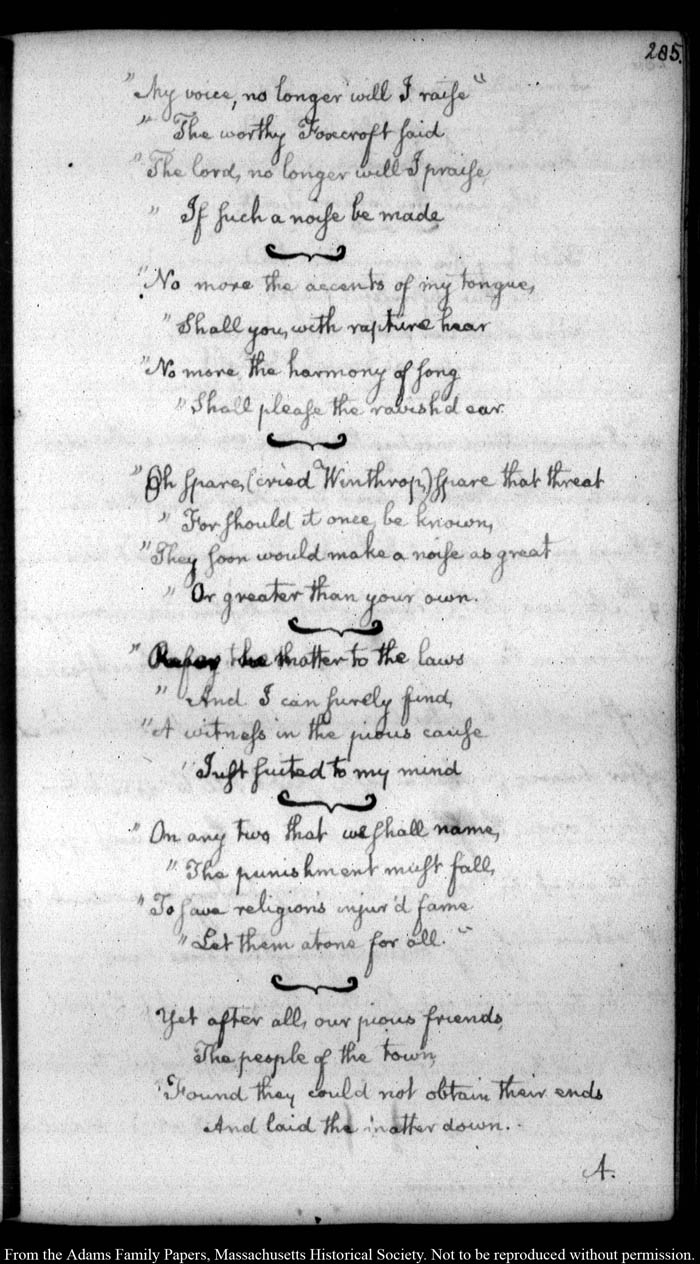 285.
"My voice, no longer will I raiſe"
" The worthy Foxcroft ſaid
"The lord, no longer will I praiſe,
" If ſuch a noiſe be made
"No more the accents of my tongue,
" Shall you, with rapture hear
"No more the harmony of ſong
" Shall pleaſe the raviſh'd ear.
"Oh ſpare, (cried Winthrop,) ſpare that threat
" For ſhould it once, be known,
"They ſoon would make a noiſe as great
" Or greater than your own.
" Refer the matter to the laws
" And I can ſurely find,
"A witneſs in the pious cauſe
" Juſt ſuited to my mind
" On any two that we ſhall name,
" The punishment muſt fall,
" To ſave religions injur'd fame
" Let them atone for all."
Yet after all, our pious friends,
The people of the town,
Found they could not obtain their ends
And laid the matter down.
A.
From the Adams Family Papers, Massachusetts Historical Society. Not to be reproduced without permission.